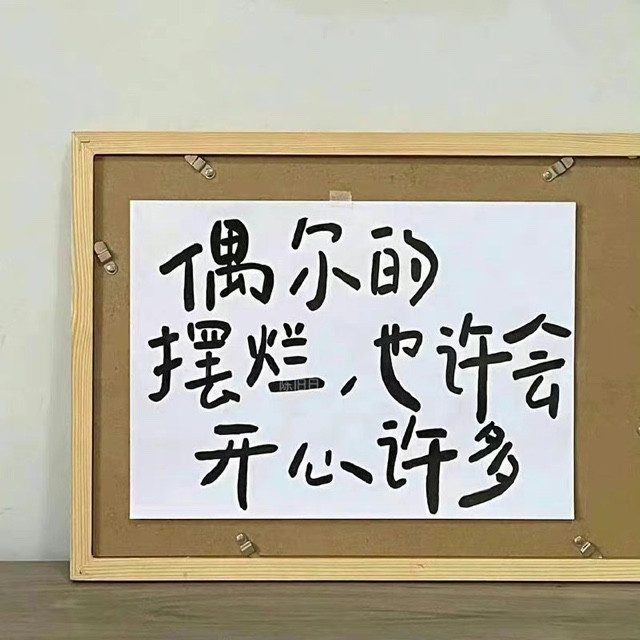 偶尔的
摆烂，也许会
开心许多
陈旧月